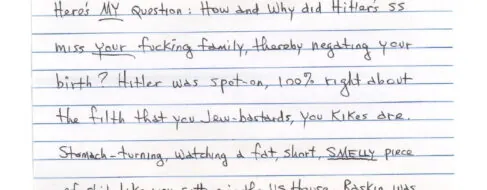 Here's MY question: How and why did Hitler's SS
miss your fucking family, thereby negating your
birth? Hitler was spot-on, 100% right about
the filth that you Jew-bastards, you Kikes are.
Stomach-turning, watching a fat, short, SMELLY piece
the US House. Raskin was